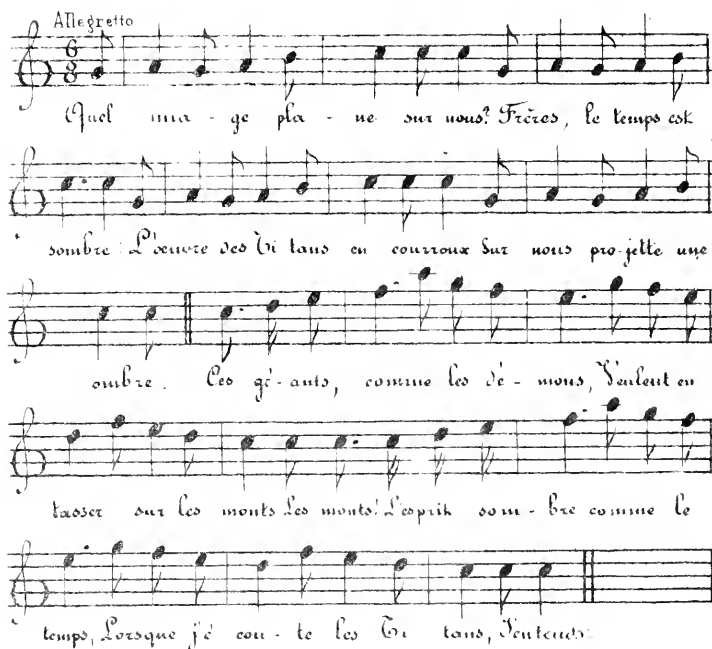 Allegretto
6
8
Quel nua - ge pla - ne sur nous? Frères, le temps est
sombre: L'oeuvre des Ti tans en courroux Sur nous pro-jette une
ombre. Ces gé-ants, comme les dé-mons, Veulent en
tasser sur les monts Les monts! L'esprit som-bre comme le
temps, Lorsque j'é cou-te les Ti tans, J'entends: